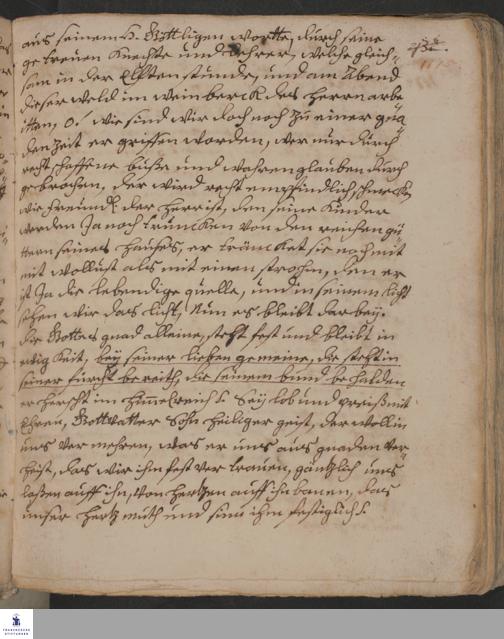 aus seinem H. Göttligen wortte, durch seine
getreuen Knechte und Lehrer, welche gleich-
sam in der Elften stunde, und am Abend
dieser weld im weinberck des Herrn arbe
itten, O. wie sind wir doch noch zu einer gna
den zeit er griffen worden, wer nur durch
recht schaffene buße und wahren glauben durch
gebrochen, der wird recht empfindlich schmecken
wie freundl. der Herr ist, den seine Kinder
werden Ja noch trüncken von den reichen gü-
ttern seines Hauses, er träncket sie noch mit
mit wollust als mit einen strohm, den er
ist Ja die lebendige quelle, und in seinem licht
sehen wir das licht, Nun es bleibt darbey.
die Gottes gnad alleine, steht fest und bleibt in
ewig keit, bey seiner lieben gemeine, die steht in
seiner furcht bereith, die seinem bund behalden
er herscht im himelreich p. Sey lob und preiß mit
Ehren, Gott vatter Sohn heiliger geist, der woll in
uns ver mehren, was er uns aus gnaden ver
heist, das wir ihm fest ver trauen, gäntzlich uns
laßen auff ihn, von hertzen auff ihn bauen, das
unser hertz muth und sinn ihm festiglich p.
FRANCKESCHE
STIFTUNGEN